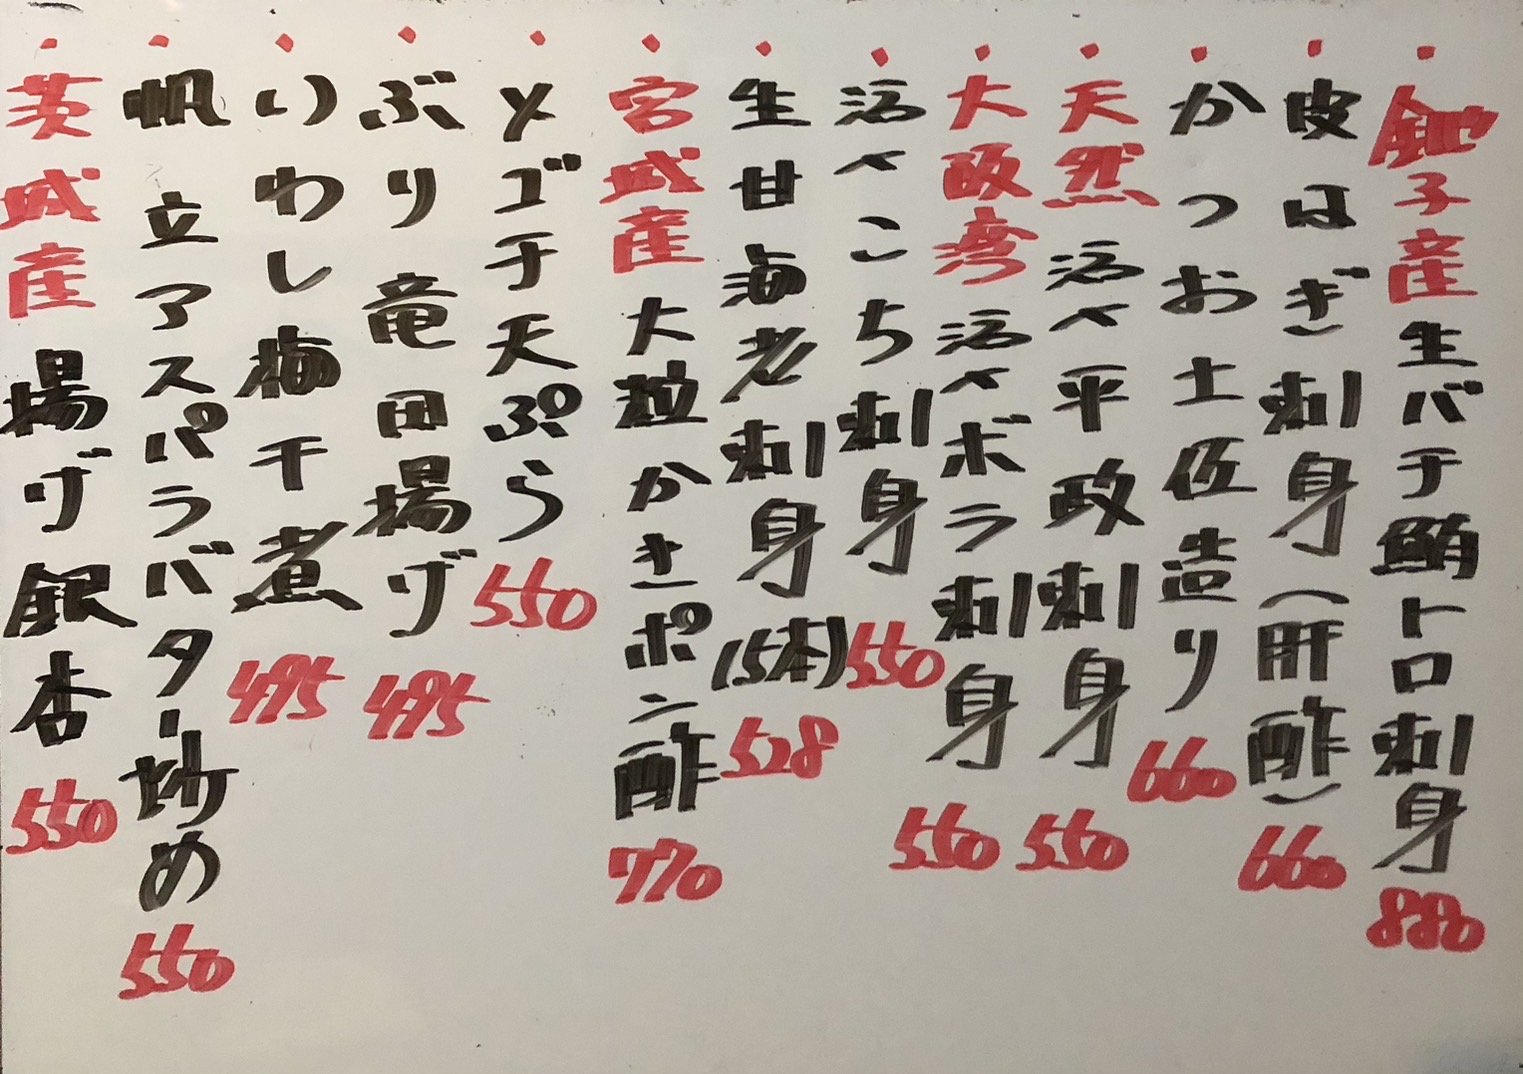 ・銚子産 生バチ鮪トロ刺身 880
・皮はぎ刺身(肝酢) 660
・かつお土佐造り 660
・天然 活〆平政刺身 550
・大阪湾 活〆ボラ刺身 550
・活〆こち刺身 550
・生甘海老刺身(5本) 528
・宮城産 大粒かきポン酢 770
・メゴチ天ぷら 550
・ぶり竜田揚げ 495
・いわし梅干煮 495
・帆立アスパラバター炒め 550
・茨城産 揚げ銀杏 550